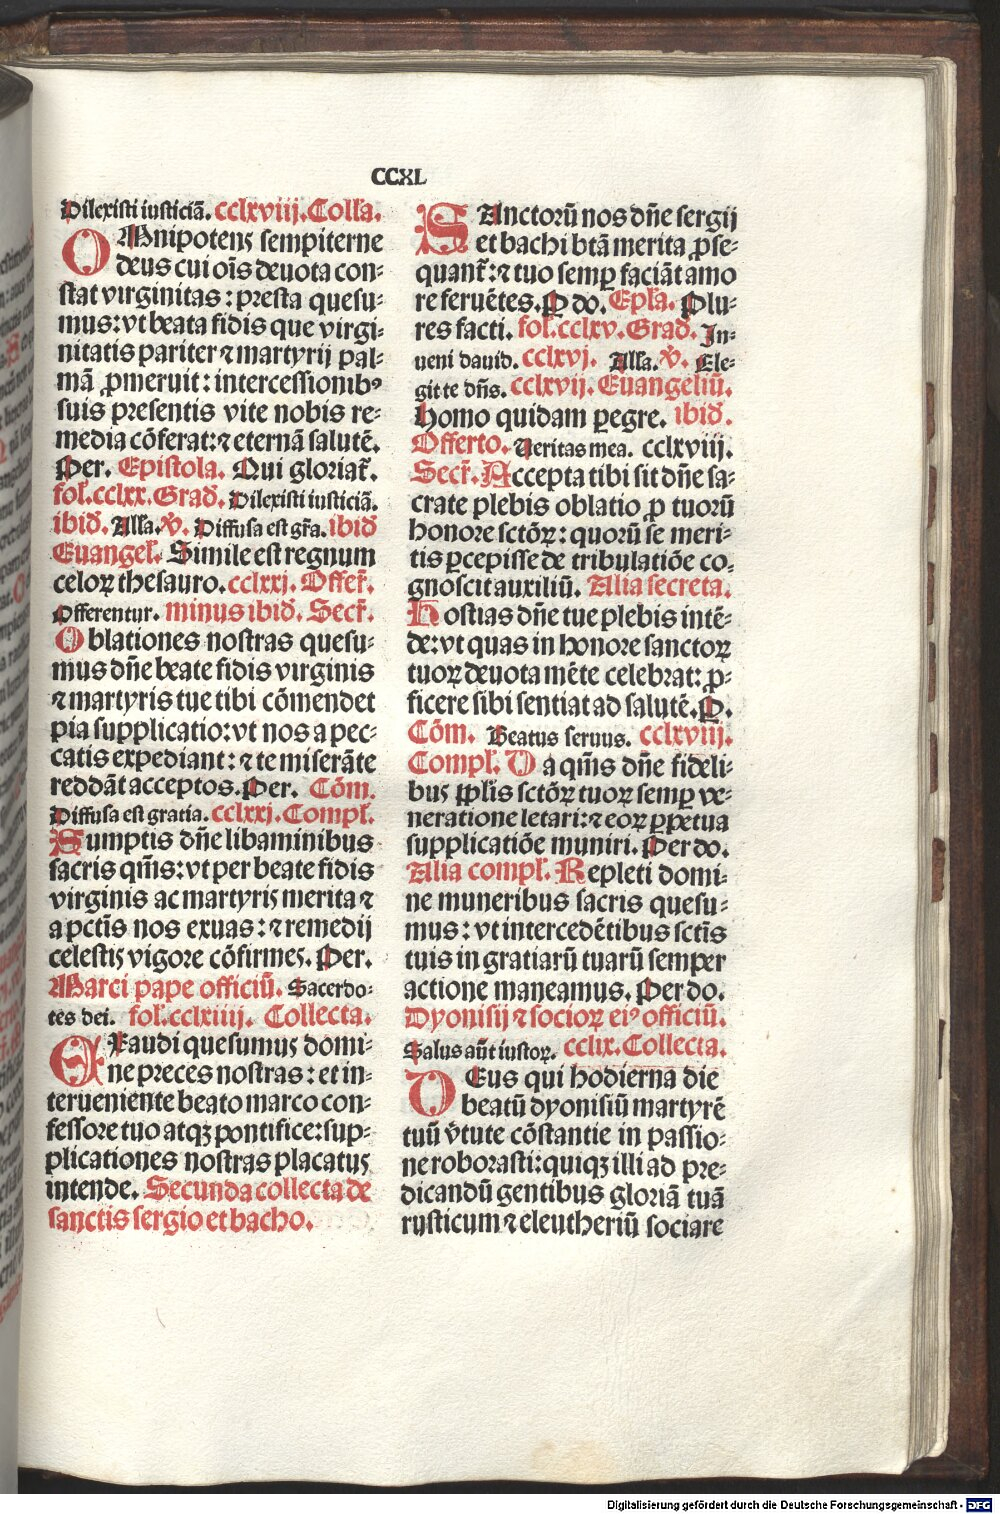 CCXL
Dilexisti iusticiã. cclxviij. Colľa.
OMnipotens sempiterne
deus cui oĩs deuota con⸗
stat virginitas : presta quesu⸗
mus: vt beata fidis que virgi⸗
nitatis pariter ⁊ martyrij pal⸗
mã ꝓmeruit : intercessionibꝰ
suis presentis vite nobis re⸗
media cõferat: ⁊ eternã salutẽ.
Per. Epistola. Qui gloriat̃.
fol. cclxx. Grad̃. Dilexisti iusticiã.
ibid̃. Alľa. ṽ. Diffusa est gr̃a. ibid̃
Euangel̃. Simile est regnum
celoꝝ thesauro. cclxxj. Offer̃.
Offerentur. minus ibid̃. Secr̃.
Oblationes nostras quesu⸗
mus dñe beate fidis virginis
⁊ martyris tue tibi cõmendet
pia supplicatio: vt nos a pec⸗
catis expediant : ⁊ te miserãte
reddãt acceptos. Per. Cõm.
Diffusa est gratia. cclxxj. Compl̃.
Sumptis dñe libaminibus
sacris qm̃s: vt per beate fidis
virginis ac martyris merita ⁊
a pctĩs nos exuas : ⁊ remedij
celestis vigore cõfirmes. Per.
Marci pape officiũ. Sacerdo⸗
tes dei. fol. cclxiiij. Collecta.
EXaudi quesumus domi⸗
ne preces nostras : et in⸗
terueniente beato marco con⸗
fessore tuo atqꝫ pontifice: sup⸗
plicationes nostras placatus
intende. Secunda collecta de
sanctis sergio et bacho.
SAnctorũ nos dñe sergij
et bachi btã merita ꝓse⸗
quant̃: ⁊ tuo semꝑ faciãt amo
re feruẽtes. P do. Epľa. Plu⸗
res facti. fol. cclxv. Grad̃. In⸗
ueni dauid. cclxvj. Alľa. ṽ. Ele⸗
git te dñs. cclxvij. Euangeliũ.
Homo quidam ꝑegre. ibid̃.
Offerto. Veritas mea. cclxviij.
Secr̃. Accepta tibi sit dñe sa⸗
crate plebis oblatio ꝓ tuorũ
honore sctõꝝ : quorũ se meri⸗
tis ꝑcepisse de tribulatiõe co⸗
gnoscit auxiliũ. Alia secreta.
Hostias dñe tue plebis intẽ⸗
de: vt quas in honore sanctoꝝ
tuoꝝ deuota mẽte celebrat: ꝓ⸗
ficere sibi sentiat ad salutẽ. P.
Cõm. Beatus seruus. cclxviij.
Compl̃. Da qm̃s dñe fideli⸗
bus ppľis sctõꝝ tuoꝝ semꝑ ve⸗
neratione letari: ⁊ eoꝝ ꝑpetua
supplicatiõe muniri. Per do.
Alia compl̃. Repleti domi⸗
ne muneribus sacris quesu⸗
mus : vt intercedẽtibus sctĩs
tuis in gratiarũ tuarũ semper
actione maneamus. Per do.
Dyonisij ⁊ socioꝝ eiꝰ officiũ.
Salus aũt iustoꝝ. cclix. Collecta.
DEus qui hodierna die
beatũ dyonisiũ martyrẽ
tuũ v̓tute cõstantie in passio⸗
ne roborasti: quiqꝫ illi ad pre⸗
dicandũ gentibus gloriã tuã
rusticum ⁊ eleutheriũ sociare
Digitalisierung gefördert durch die Deutsche Forschungsgemeinschaft - DFG